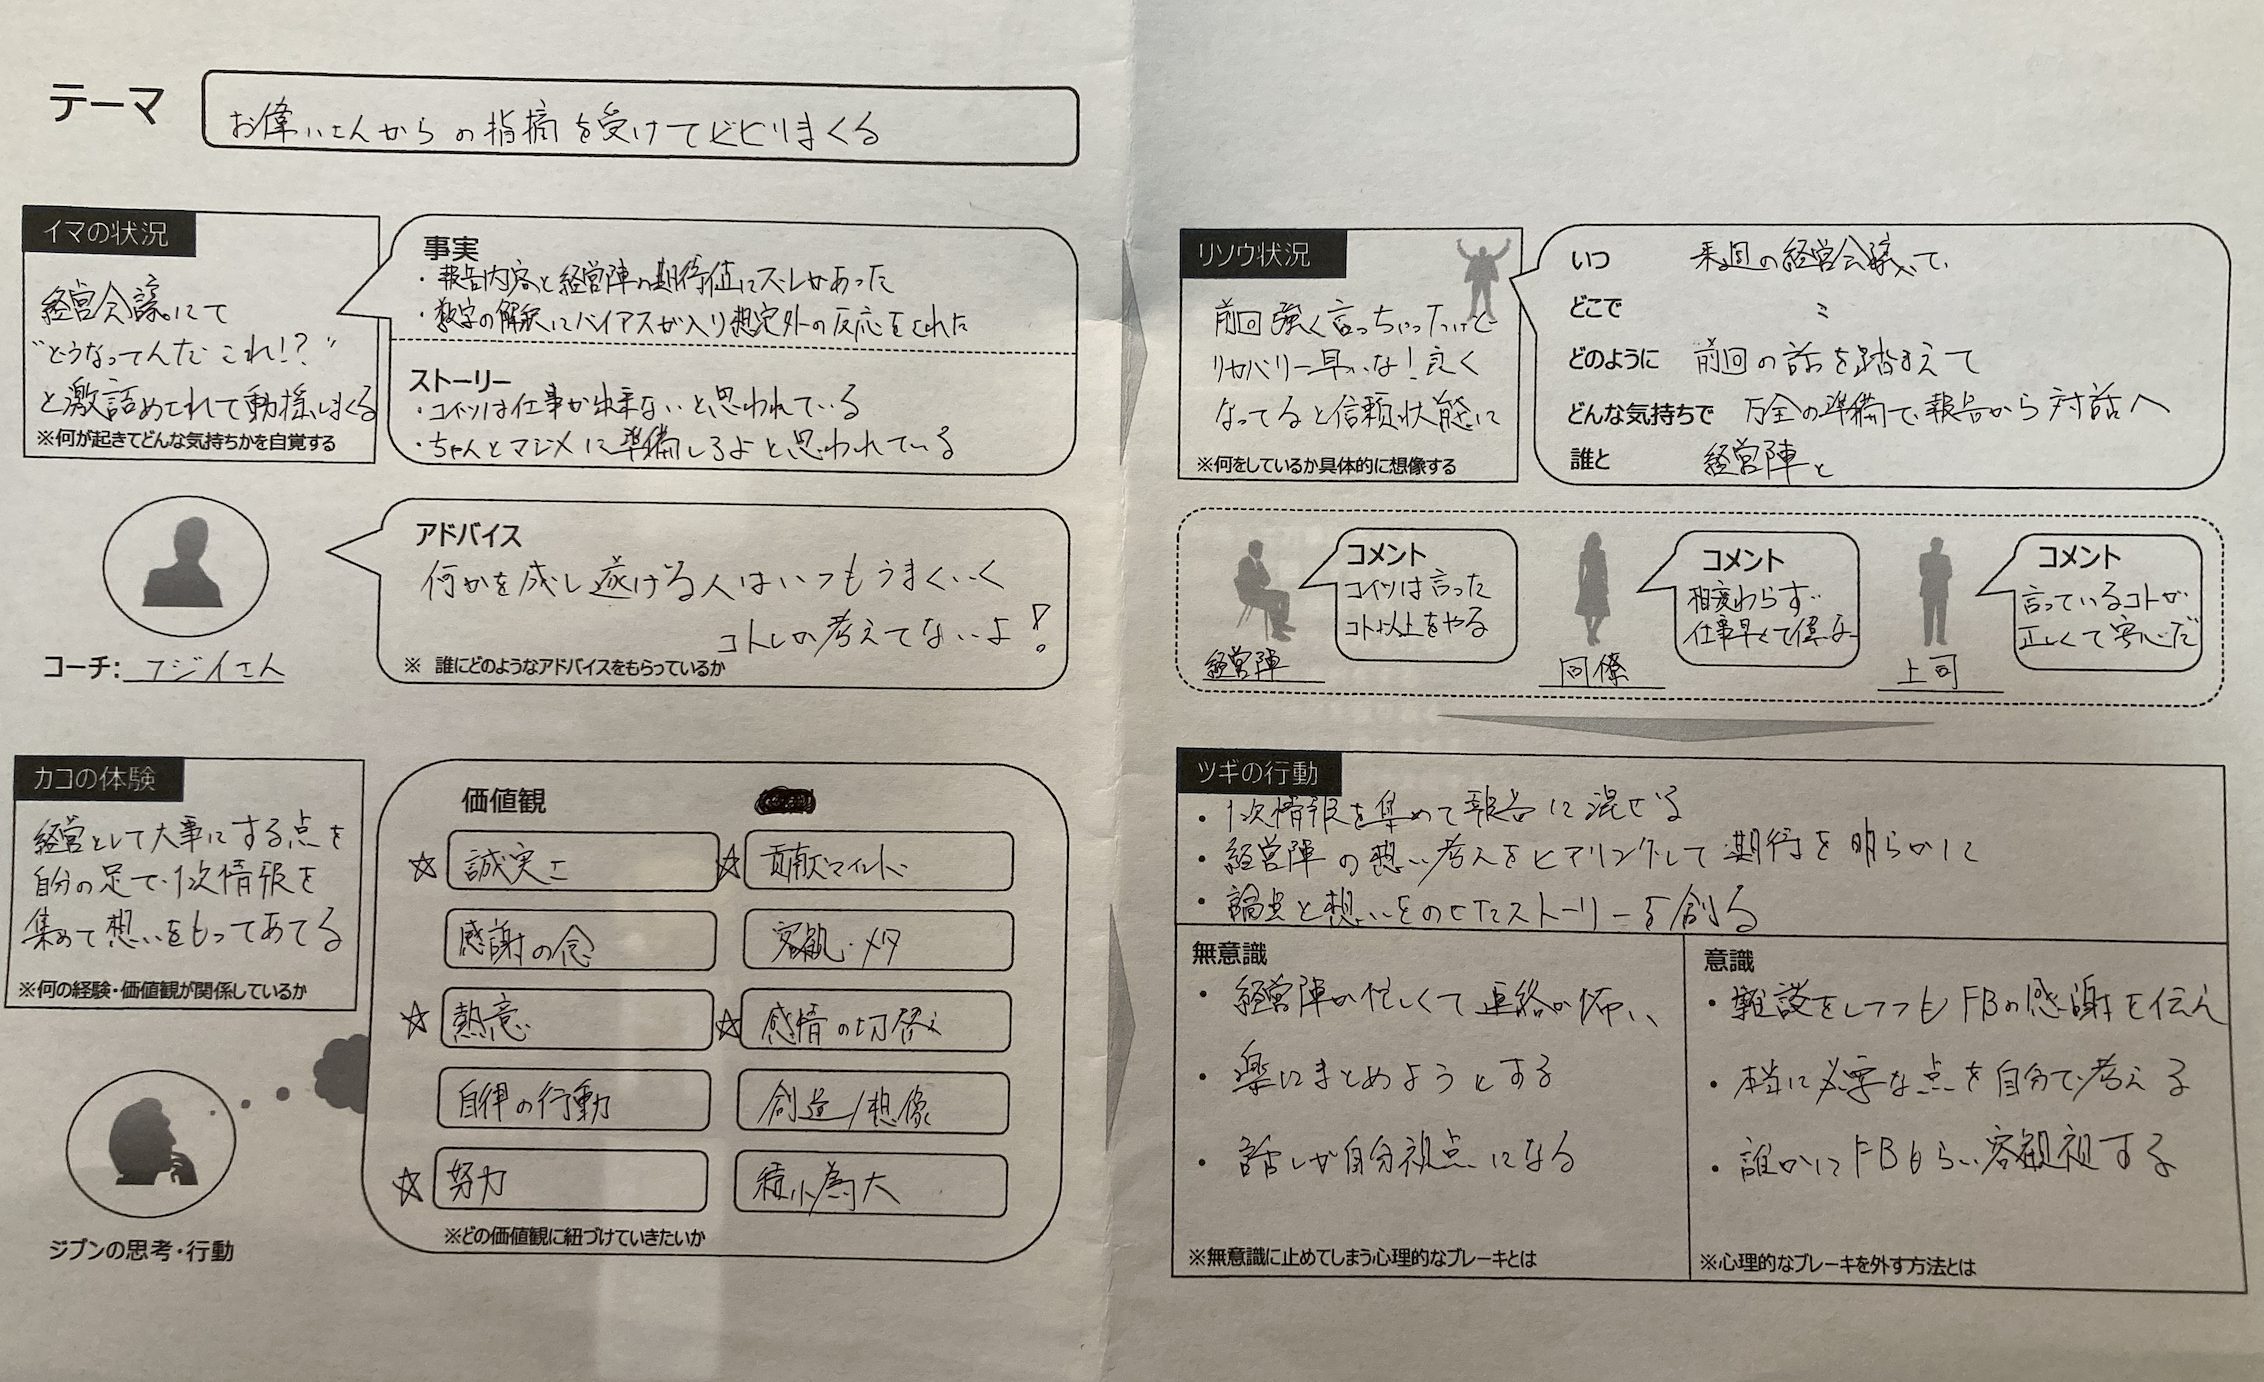 テーマ
お偉いさんからの指摘を受けてビビりまくる
イマの状況
経営会議にて
"どうなってんだ これ!?"
と激詰めされて動揺しまくる
※何が起きてどんな気持ちかを自覚する
事実
・報告内容と経営陣の期待値にズレがあった
・数字の解釈にバイアスが入り想定外の反応をされた
ストーリー
・コイツは仕事が出来ないと思われている
・ちゃんとマジメに準備しろよと思われている
コーチ: フジイさん
アドバイス
何かを成し遂げる人はいつもうまくいく
コトしか考えてないよ!
※ 誰にどのようなアドバイスをもらっているか
カコの体験
経営として大事にする点を
自分の足で1次情報を
集めて想いをもってあてる
※何の経験・価値観が関係しているか
ジブンの思考・行動
価値観
☆ 誠実さ
☆ 貢献マインド
感謝の念
客観・メタ
☆ 熱意
☆ 感情の切替え
自律の行動
創造/想像
☆ 努力
積小為大
※どの価値観に紐づけていきたいか
リソウ状況
前回強く言っちゃったけど
リカバリー早いな!良く
なってると信頼状態に
※何をしているか具体的に想像する
いつ 来週の経営会議で
どこで 〃
どのように 前回の話を踏まえて
どんな気持ちで 万全の準備で報告から対話へ
誰と 経営陣と
経営陣
コメント
コイツは言った
コト以上をやる
同僚
コメント
相変わらず
仕事早くて偉いな
上司
コメント
言っているコトが
正しくて安心だ
ツギの行動
・1次情報を集めて報告に混ぜる
・経営陣の想い考えをヒアリングして期待を明らかに
・論点と想いをのせたストーリーを創る
無意識
・経営陣が忙しくて連絡が怖い
・楽にまとめようとする
・話しが自分視点になる
※無意識に止めてしまう心理的なブレーキとは
意識
・雑談をしつつもFBの感謝を伝え
・本当に必要な点を自分で考える
・誰かにFBもらい客観視する
※心理的なブレーキを外す方法とは